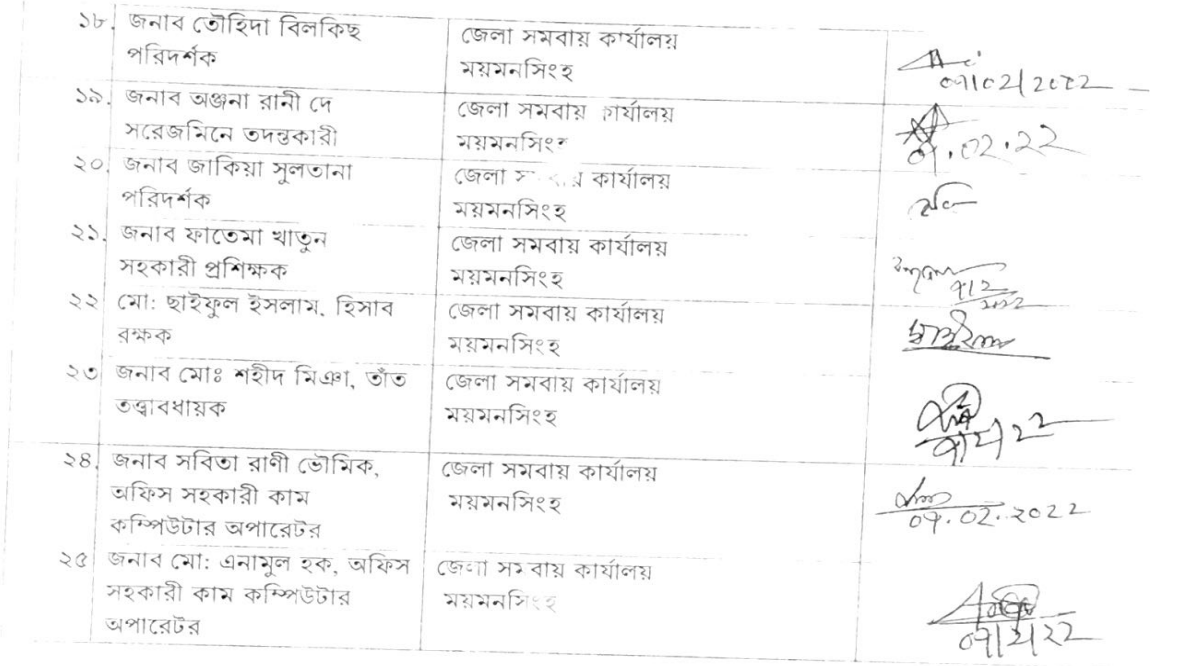 ১৮. জনাব তৌহিদা বিলকিছ
পরিদর্শক
জেলা সমবায় কার্যালয়
ময়মনসিংহ
০৭/০২/২০২২
১৯. জনাব অঞ্জনা রানী দে
সরেজমিনে তদন্তকারী
জেলা সমবায় কার্যালয়
ময়মনসিংহ
০৭.০২.২২
২০. জনাব জাকিয়া সুলতানা
পরিদর্শক
জেলা কার্যালয়
ময়মনসিংহ
২১. জনাব ফাতেমা খাতুন
সহকারী প্রশিক্ষক
জেলা সমবায় কার্যালয়
ময়মনসিংহ
৭/২
২০২২
২২ মো: ছাইফুল ইসলাম, হিসাব
রক্ষক
জেলা সমবায় কার্যালয়
ময়মনসিংহ
২৩ জনাব মোঃ শহীদ মিঞা, তাঁত
তত্ত্বাবধায়ক
জেলা সমবায় কার্যালয়
ময়মনসিংহ
৭/২/২২
২৪. জনাব সবিতা রাণী ভৌমিক,
অফিস সহকারী কাম
কম্পিউটার অপারেটর
জেলা সমবায় কার্যালয়
ময়মনসিংহ
০৭.০২.২০২২
২৫ জনাব মো: এনামুল হক, অফিস
সহকারী কাম কম্পিউটার
অপারেটর
জেলা সমবায় কার্যালয়
ময়মনসিংহ
০৭/২/২২